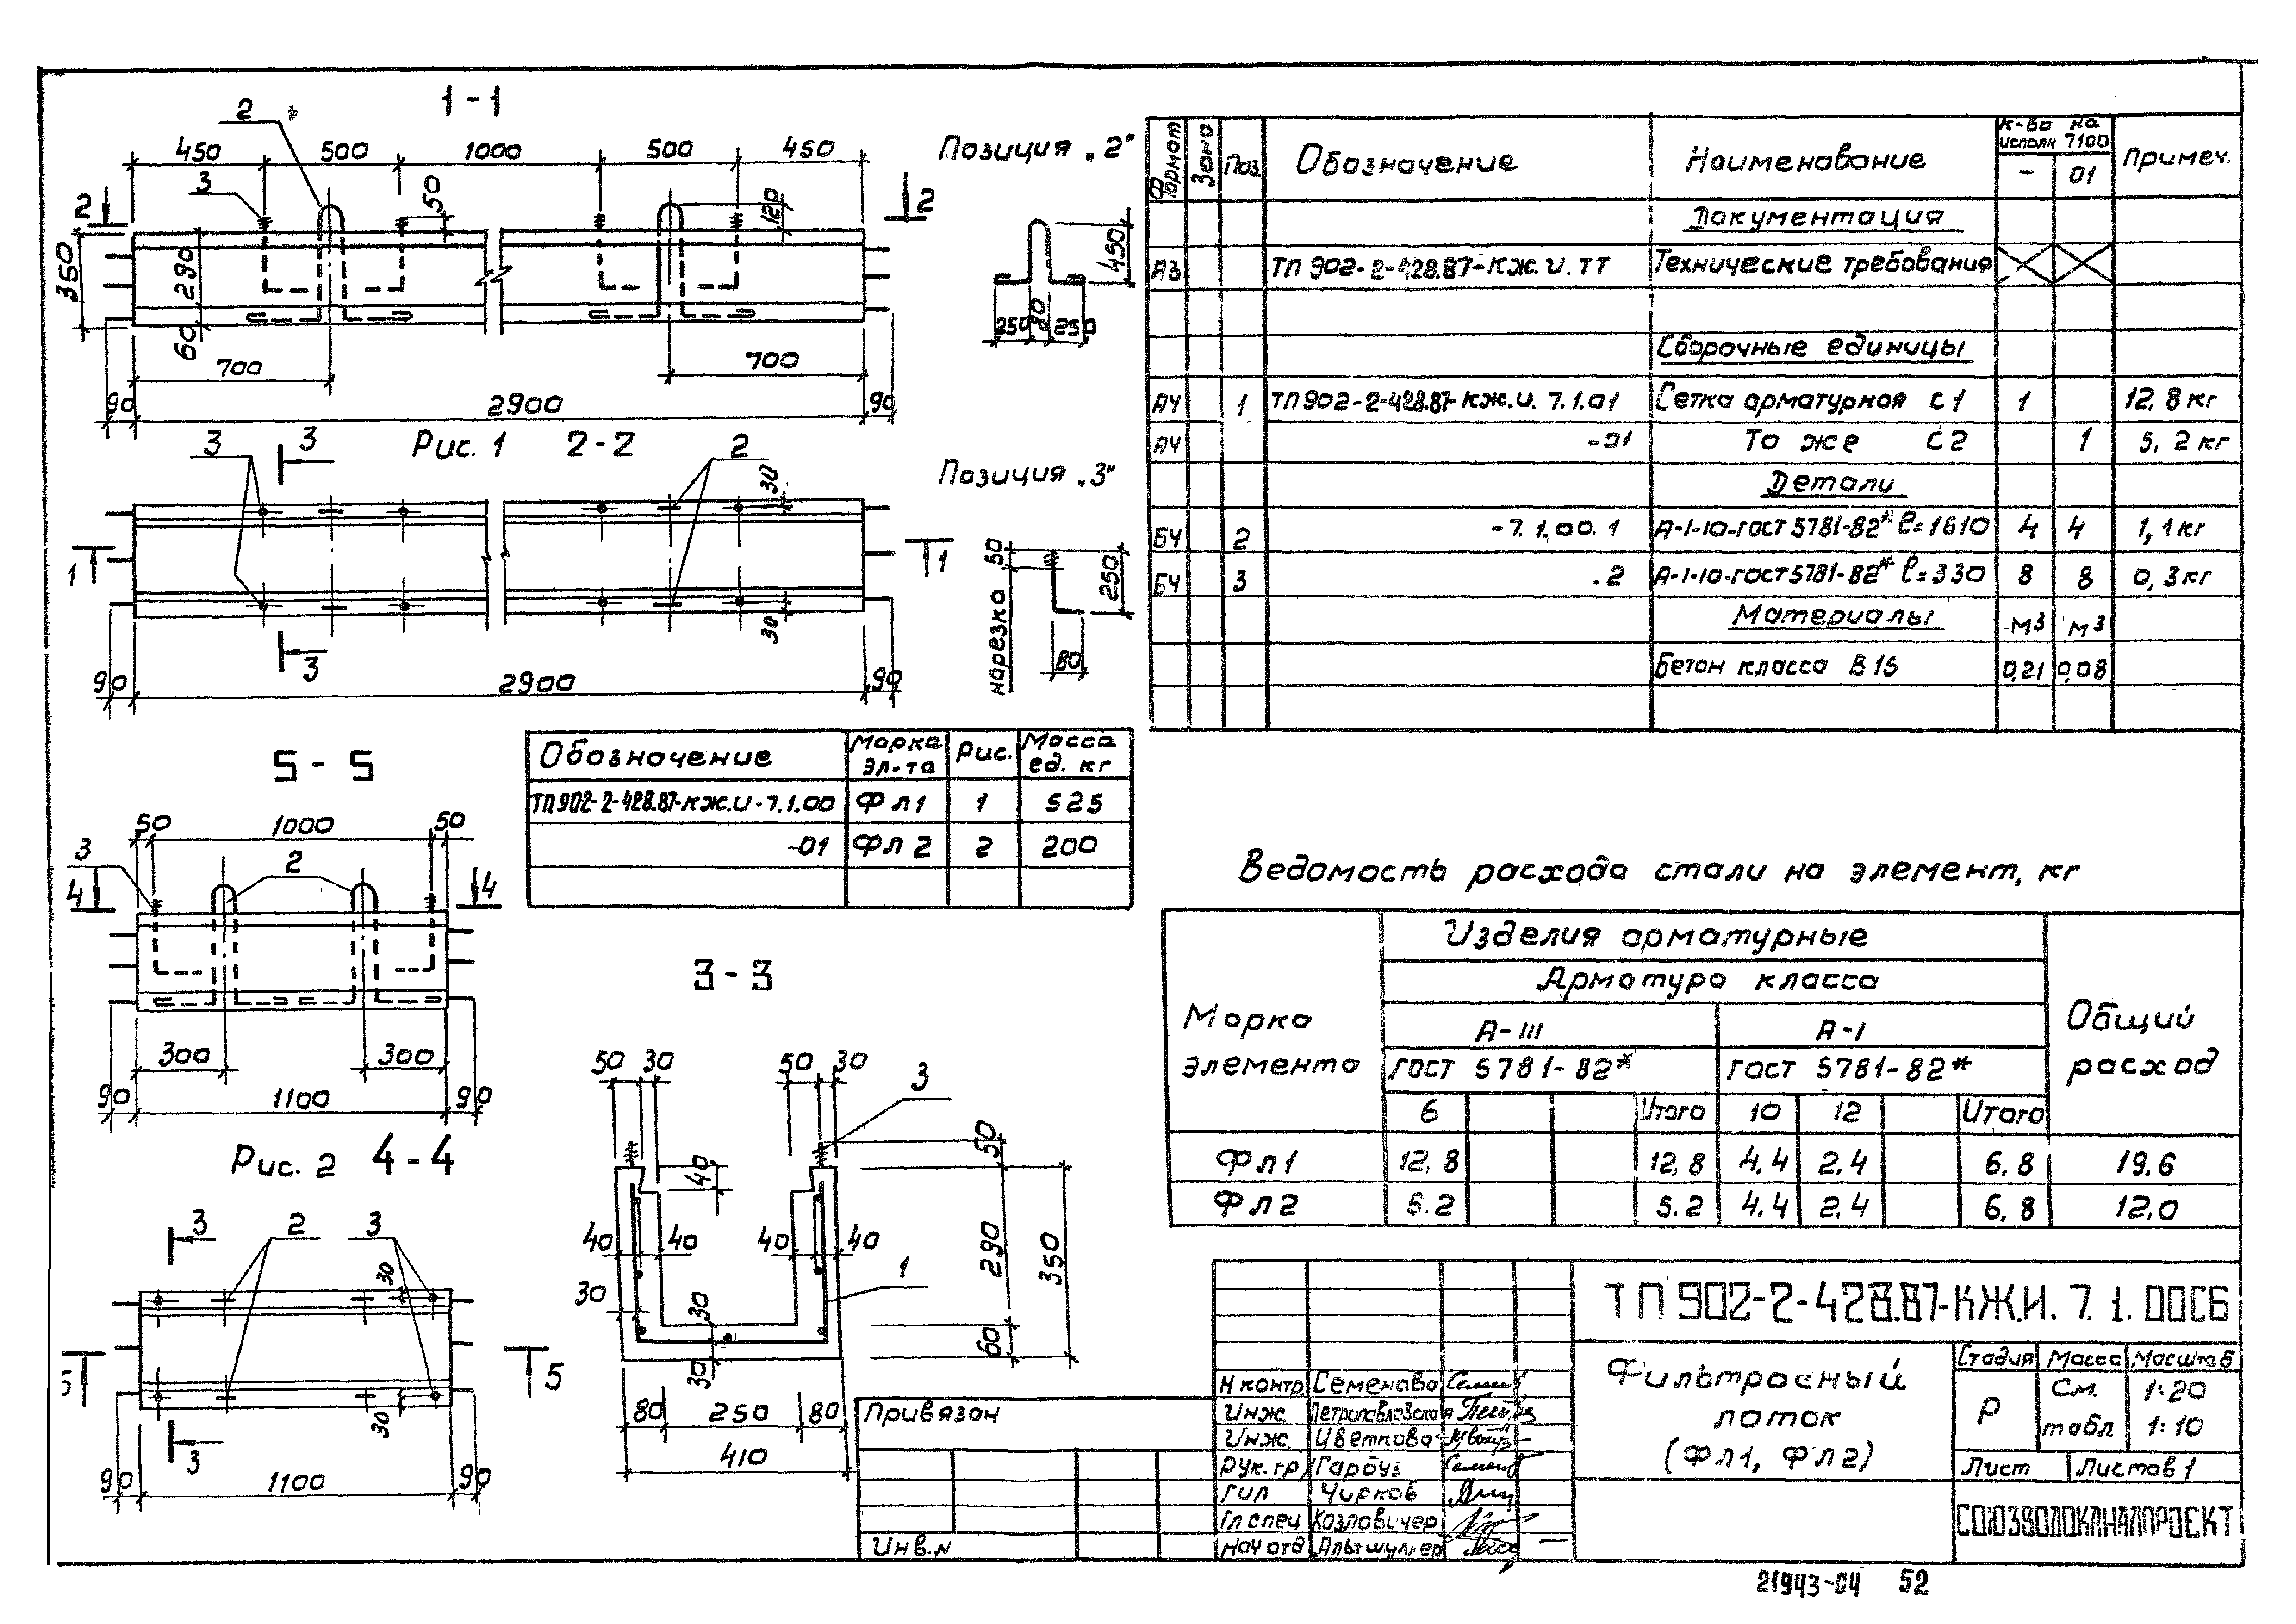 1-1
2
450 500 1000 500 450
3
50
120
2 2
350
290
60
700 700
90 2900 90
Рис. 1 2-2
3 3 2
30
1 1
30
3
90 2900 90
Позиция „2"
450
250 30 250
Позиция „3"
50
нарезка
250
80
5-5
50 1000 50
3 2
4 4
300 300
90 1100 90
Рис. 2 4-4
3 2 3
30
5 5
30
3
90 1100 90
Обозначение Марка эл-та Рис. Масса ед. кг
ТП902-2-428.87-КЖ.И-7.1.00 Фл1 1 525
-01 Фл2 2 200
3-3
50 30 50 30
3
50
40
40 40 40 40
290
350
1
30
30
60
30
80 250 80
410
Формат Зона Поз. Обозначение Наименование К-во на исполн 7100 Примеч.
- 01
Документация
А3 ТП 902-2-428.87-КЖ.И.ТТ Технические требования
Сборочные единицы
А4 1 ТП902-2-428.87-КЖ.И. 7.1.01 Сетка арматурная С1 1 12,8 кг
А4 -01 То же С2 1 5,2 кг
Детали
БЧ 2 -7.1.00.1 А-I-10-ГОСТ 5781-82* ℓ=1610 4 4 1,1 кг
БЧ 3 .2 А-I-10-ГОСТ 5781-82* ℓ=330 8 8 0,3 кг
Материалы м3 м3
Бетон класса В15 0,21 0,08
Ведомость расхода стали на элемент, кг
Марка элемента Изделия арматурные Общий расход
Арматура класса
А-III А-I
ГОСТ 5781-82* ГОСТ 5781-82*
6 Итого 10 12 Итого
Фл1 12,8 12,8 4.4 2.4 6.8 19.6
Фл2 5.2 5.2 4,4 2,4 6,8 12.0
ТП 902-2-428.87-КЖ.И. 7. 1. 00СБ
Фильтросный
лоток
(Фл1, Фл2)
Стадия Масса Масштаб
Р См. табл. 1:20
1:10
Лист Листов 1
СОЮЗВОДОКАНАЛПРОЕКТ
Н контр Семенова
Инж. Петропавловская
Инж. Цветкова
Рук. гр. Гарбуз
ГИП Чирков
Гл спец Козловичер
Нач отд Альтшуллер
Привязан
Инв. N
21943-04 52